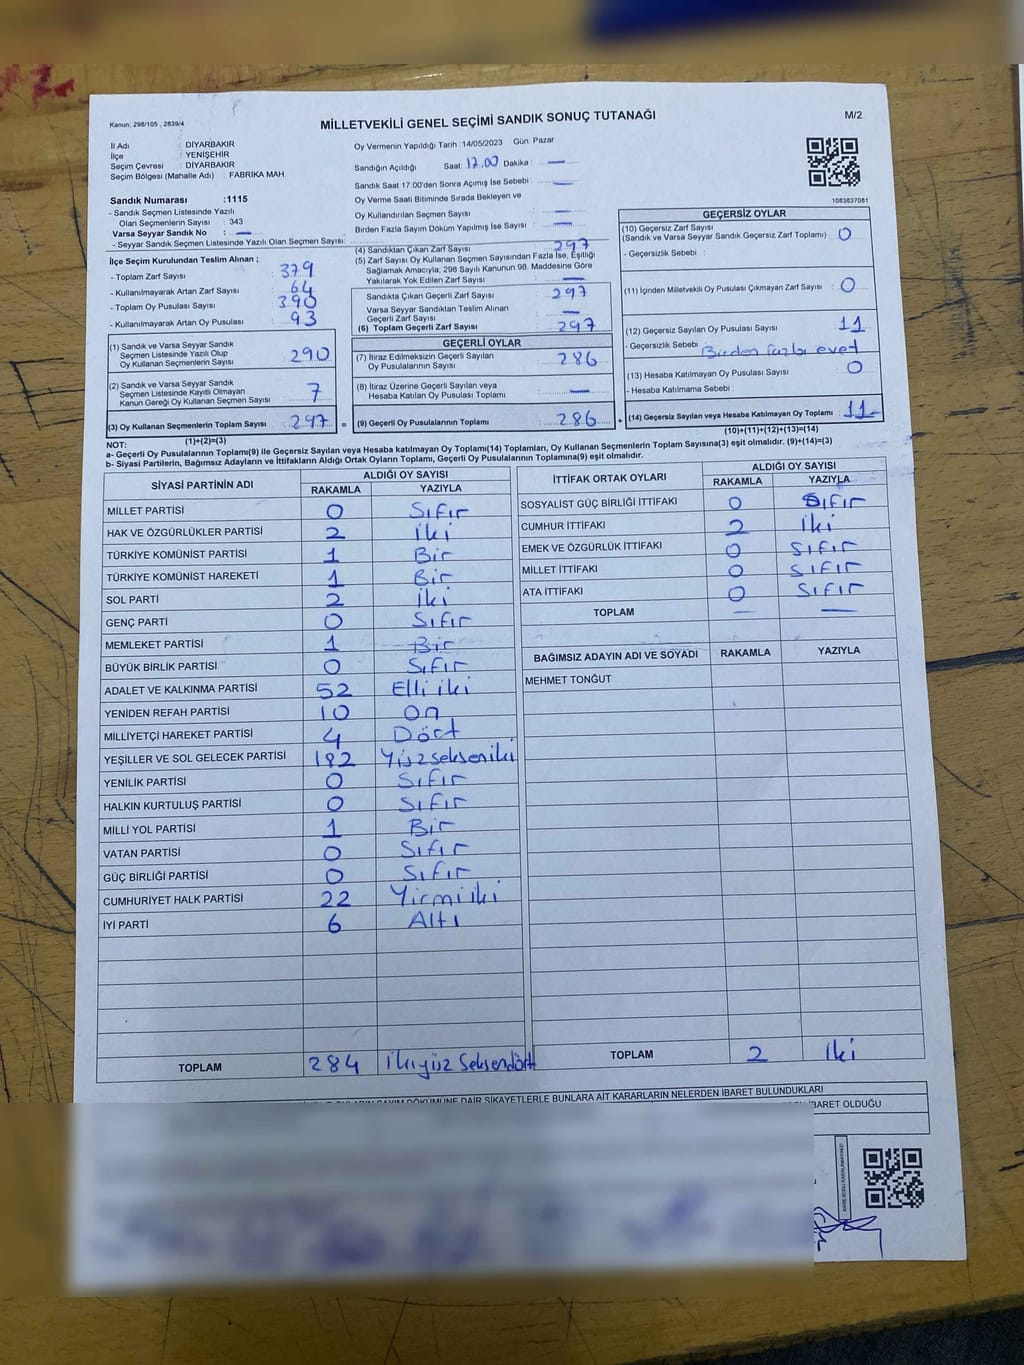 Kanun; 298/105 , 2839/4
MİLLETVEKİLİ GENEL SEÇİMİ SANDIK SONUÇ TUTANAĞI
M/2
İl Adı : DİYARBAKIR
İlçe : YENİŞEHİR
Seçim Çevresi : DİYARBAKIR
Seçim Bölgesi (Mahalle Adı) : FABRİKA MAH.
Sandık Numarası :1115
- Sandık Seçmen Listesinde Yazılı
Olan Seçmenlerin Sayısı : 343
Varsa Seyyar Sandık No : —
- Seyyar Sandık Seçmen Listesinde Yazılı Olan Seçmen Sayısı:
Oy Vermenin Yapıldığı Tarih 14/05/2023 Gün: Pazar
Sandığın Açıldığı Saat: 17.00 Dakika : —
Sandık Saat 17.00'den Sonra Açılmış İse Sebebi : —
Oy Verme Saati Bitiminde Sırada Bekleyen ve
Oy Kullandırılan Seçmen Sayısı —
Birden Fazla Sayım Döküm Yapılmış İse Sayısı : —
1083837081
İlçe Seçim Kurulundan Teslim Alınan ;
- Toplam Zarf Sayısı : 379
- Kullanılmayarak Artan Zarf Sayısı : 64
- Toplam Oy Pusulası Sayısı : 390
- Kullanılmayarak Artan Oy Pusulası : 93
(1) Sandık ve Varsa Seyyar Sandık
Seçmen Listesinde Yazılı Olup
Oy Kullanan Seçmenlerin Sayısı : 290
(2) Sandık ve Varsa Seyyar Sandık
Seçmen Listesinde Kayıtlı Olmayan
Kanun Gereği Oy Kullanan Seçmen Sayısı : 7
(3) Oy Kullanan Seçmenlerin Toplam Sayısı : 297 =
(1)+(2)=(3)
(4) Sandıktan Çıkan Zarf Sayısı : 297
(5) Zarf Sayısı Oy Kullanan Seçmen Sayısından Fazla İse, Eşitliği
Sağlamak Amacıyla, 298 Sayılı Kanunun 98. Maddesine Göre
Yakılarak Yok Edilen Zarf Sayısı : —
Sandıkta Çıkan Geçerli Zarf Sayısı : 297
Varsa Seyyar Sandıktan Teslim Alınan
Geçerli Zarf Sayısı : —
(6) Toplam Geçerli Zarf Sayısı : 297
GEÇERLİ OYLAR
(7) İtiraz Edilmeksizin Geçerli Sayılan
Oy Pusulalarının Sayısı : 286
(8) İtiraz Üzerine Geçerli Sayılan veya
Hesaba Katılan Oy Pusulası Toplamı : —
(9) Geçerli Oy Pusulalarının Toplamı : 286 +
GEÇERSİZ OYLAR
(10) Geçersiz Zarf Sayısı
(Sandık ve Varsa Seyyar Sandık Geçersiz Zarf Toplamı) : 0
- Geçersizlik Sebebi :
(11) İçinden Milletvekili Oy Pusulası Çıkmayan Zarf Sayısı : 0
(12) Geçersiz Sayılan Oy Pusulası Sayısı : 11
- Geçersizlik Sebebi : Birden fazla evet
(13) Hesaba Katılmayan Oy Pusulası Sayısı : 0
- Hesaba Katılmama Sebebi :
(14) Geçersiz Sayılan veya Hesaba Katılmayan Oy Toplamı : 11
(10)+(11)+(12)+(13)=(14)
NOT:
a- Geçerli Oy Pusulalarının Toplamı(9) ile Geçersiz Sayılan veya Hesaba katılmayan Oy Toplamı(14) Toplamları, Oy Kullanan Seçmenlerin Toplam Sayısına(3) eşit olmalıdır. (9)+(14)=(3)
b- Siyasi Partilerin, Bağımsız Adayların ve İttifakların Aldığı Ortak Oyların Toplamı, Geçerli Oy Pusulalarının Toplamına(9) eşit olmalıdır.
SİYASİ PARTİNİN ADI ALDIĞI OY SAYISI
RAKAMLA YAZIYLA
MİLLET PARTİSİ 0 Sıfır
HAK VE ÖZGÜRLÜKLER PARTİSİ 2 İki
TÜRKİYE KOMÜNİST PARTİSİ 1 Bir
TÜRKİYE KOMÜNİST HAREKETİ 1 Bir
SOL PARTİ 2 İki
GENÇ PARTİ 0 Sıfır
MEMLEKET PARTİSİ 1 Bir
BÜYÜK BİRLİK PARTİSİ 0 Sıfır
ADALET VE KALKINMA PARTİSİ 52 Elli iki
YENİDEN REFAH PARTİSİ 10 On
MİLLİYETÇİ HAREKET PARTİSİ 4 Dört
YEŞİLLER VE SOL GELECEK PARTİSİ 182 Yüzsekseniki
YENİLİK PARTİSİ 0 Sıfır
HALKIN KURTULUŞ PARTİSİ 0 Sıfır
MİLLİ YOL PARTİSİ 1 Bir
VATAN PARTİSİ 0 Sıfır
GÜÇ BİRLİĞİ PARTİSİ 0 Sıfır
CUMHURİYET HALK PARTİSİ 22 Yirmi iki
İYİ PARTİ 6 Altı
TOPLAM 284 İkiyüz Seksendört
İTTİFAK ORTAK OYLARI ALDIĞI OY SAYISI
RAKAMLA YAZIYLA
SOSYALİST GÜÇ BİRLİĞİ İTTİFAKI 0 Sıfır
CUMHUR İTTİFAKI 2 İki
EMEK VE ÖZGÜRLÜK İTTİFAKI 0 Sıfır
MİLLET İTTİFAKI 0 Sıfır
ATA İTTİFAKI 0 Sıfır
TOPLAM — —
BAĞIMSIZ ADAYIN ADI VE SOYADI RAKAMLA YAZIYLA
MEHMET TONĞUT
TOPLAM 2 İki
DÖKÜMÜNE DAİR ŞİKAYETLERLE BUNLARA AİT KARARLARIN NELERDEN İBARET BULUNDUKLARI
İBARET OLDUĞU